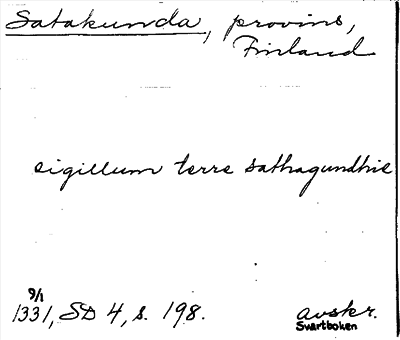 Satakunda, provins,
Finland
sigillum terre sathagundhie
9/1
1331, SD 4, s. 198.
avskr.
Svartboken